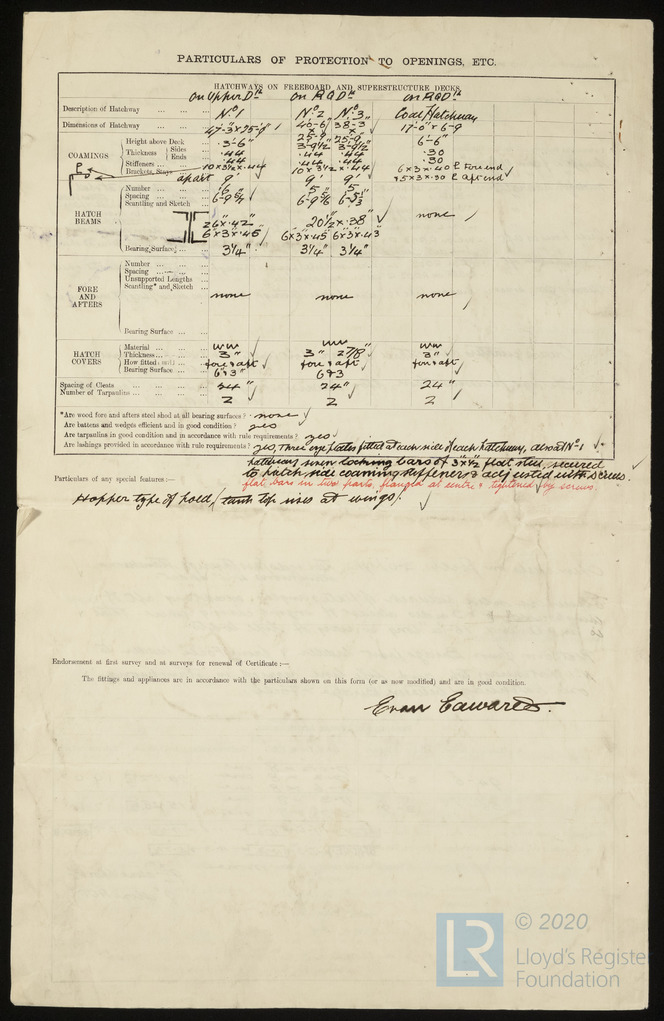 PARTICULARS OF PROTECTION TO OPENINGS, ETC.
HATCHWAYS ON FREEBOARD AND SUPERSTRUCTURE DECKS
on Upper Dk on R Q Dk on R Q Dk
Description of Hatchway ... ... ... No 1 No 2 No 3 Coal Hatchway
Dimensions of Hatchway ... ... 47-3 x 25-9 40-6 x 25-9 38-3 x 25-9 17-0 x 6-9
COAMINGS
Height above Deck ... 3-6" 3-9½ 3-9½ 6-6"
Thickness Sides ... .44 .44 .44 .30
Ends ... .44 .44 .44 .30
Stiffeners ... 10 x 3½ x .44 10 x 3½ x .44 6 x 3 x .40 P Fore end
Brackets, Stays apart 9' 9' 9' 5 x 3 x .30 P aft end
HATCH BEAMS
Number ... 6 5 5 none
Spacing ...
Scantling and Sketch
26" x .42" 20½ x .38"
6" x 3" x .45" 6 x 3 x .45" 6 x 3 x .43"
Bearing Surface ... 3¼" 3¼" 3¼"
FORE AND AFTERS
Number ...
Spacing ...
Unsupported Lengths
Scantling* and Sketch
none none none
Bearing Surface ...
HATCH COVERS
Material ... WW WW WW
Thickness ... 3" 3" 2 7/8" 3"
How fitted fore & aft fore & aft fore & aft
Bearing Surface ... 6 & 3" 6 & 3
Spacing of Cleats 24" 24" 24"
Number of Tarpaulins 2 2 2
*Are wood fore and afters steel shod at all bearing surfaces? none
Are battens and wedges efficient and in good condition? yes
Are tarpaulins in good condition and in accordance with rule requirements? yes
Are lashings provided in accordance with rule requirements? yes, Three eye plates fitted at each side of each hatchway, also at No 1
hatchway seven locking bars of 3" x ½" flat steel, secured
to hatch side coaming stiffeners & adjusted with screws.
Particulars of any special features:—
flat bars in two parts flanged at centre & tightened by screws.
Hopper type of hold, tank top rises at wings.
Endorsement at first survey and at surveys for renewal of Certificate:—
The fittings and appliances are in accordance with the particulars shown on this form (or as now modified) and are in good condition.
Evan Edwards.
LR
© 2020
Lloyd's Register
Foundation